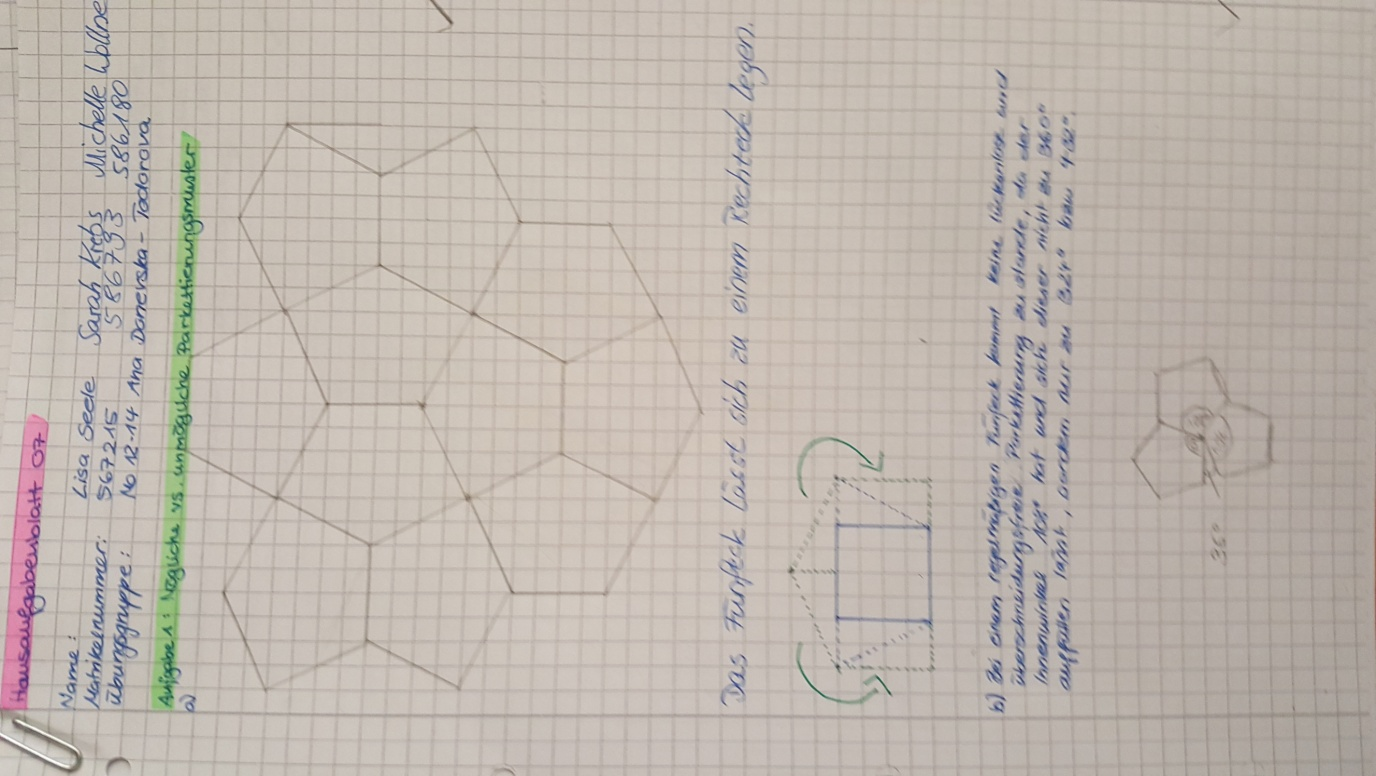 Hausaufgabenblatt 07
Name: Lisa Seele Sarah Krebs Michelle
Matrikelnummer: 567215 586793 586180
Übungsgruppe: Mo 12-14 Ana Donevska-Todorova
Aufgabe 1: Mögliche vs. unmögliche Parkettierungsmuster
a)
Das Fünfeck lässt sich zu einem Rechteck legen.
b) Bei einem regelmäßigen Fünfeck kommt keine lückenlose und
überschneidungsfreie Parkettierung zu stande, da der
Innenwinkel 108° hat und sich dieser nicht zu 360°
auffüllen lässt, sondern nur zu 324° bzw 432°.
36°